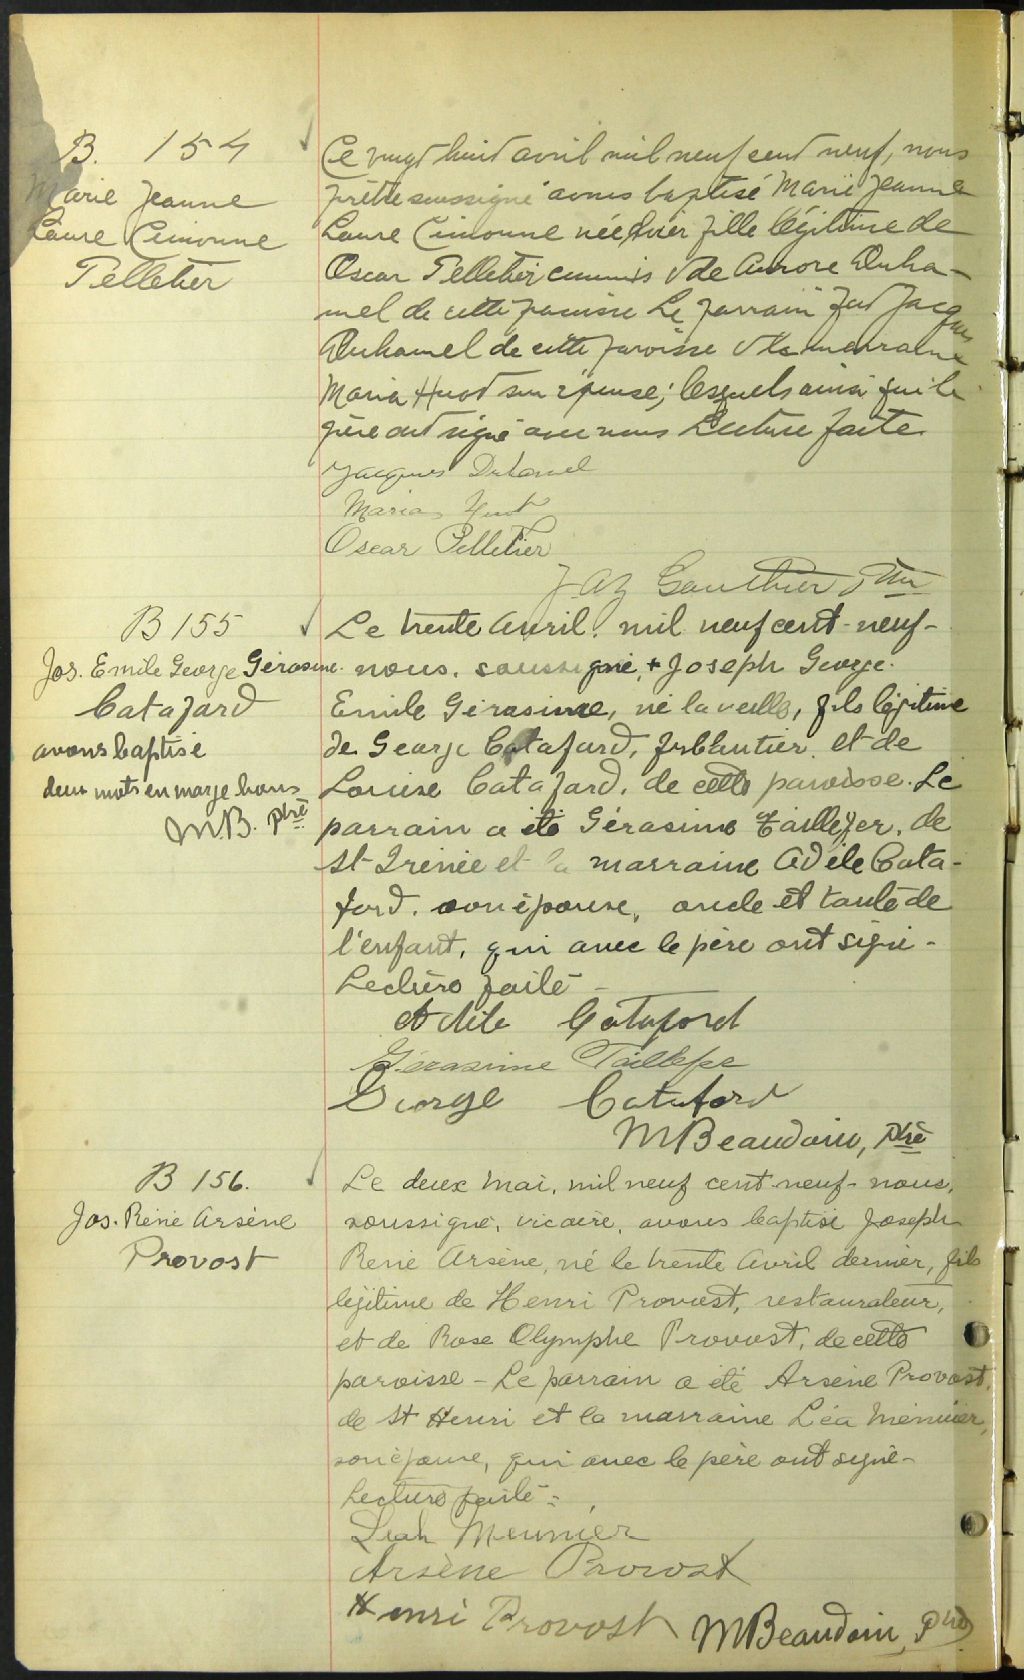 B. 154
Marie Jeanne
Laure Cimonne
Pelletier
Ce vingt huit avril mil neuf cent neuf, nous
prêtre soussigné avons baptisé Marie Jeanne
Laure Cimonne née hier fille légitime de
Oscar Pelletier commis & de Aurore Duha-
mel de cette paroisse Le parrain fut Jacques
Duhamel de cette paroisse & la marraine
Maria Huot son épouse; lesquels ainsi que le
père ont signé avec nous Lecture faite
Jacques Duhamel
Maria Huot
Oscar Pelletier
J. A. Z. Gauthier Ptre
B 155
Jos. Emile George Gérasime
Catafard
avons baptisé
deux mots en marge bons
M.B. ptre
Le trente Avril. mil neuf cent-neuf-
nous. soussigné, + Joseph George.
Emile Gérasime, né la veille, fils légitime
de George Catafard, ferblantier et de
Louise Catafard. de cette paroisse. Le
parrain a été Gérasime Taillefer, de
St Irénée et la marraine Adèle Cata-
fard. son épouse, oncle et tante de
l'enfant, qui avec le père ont signé-
Lecture faite-
Adèle Cataford
Gérasime Taillefer
George Cataford
MBeaudoin, Ptre
B 156.
Jos. René Arsène
Provost
Le deux Mai, mil neuf cent-neuf- nous,
soussigné, vicaire, avons baptisé Joseph
René Arsène, né le trente Avril dernier, fils
légitime de Henri Provost, restaurateur,
et de Rose Olymphe Provost, de cette
paroisse - Le parrain a été Arsène Provost,
de St Henri et la marraine Léa Meunier,
son épouse, qui avec le père ont signé-
Lecture faite-
Leah Meunier
Arsène Provost
Henri Provost
MBeaudoin, Ptre